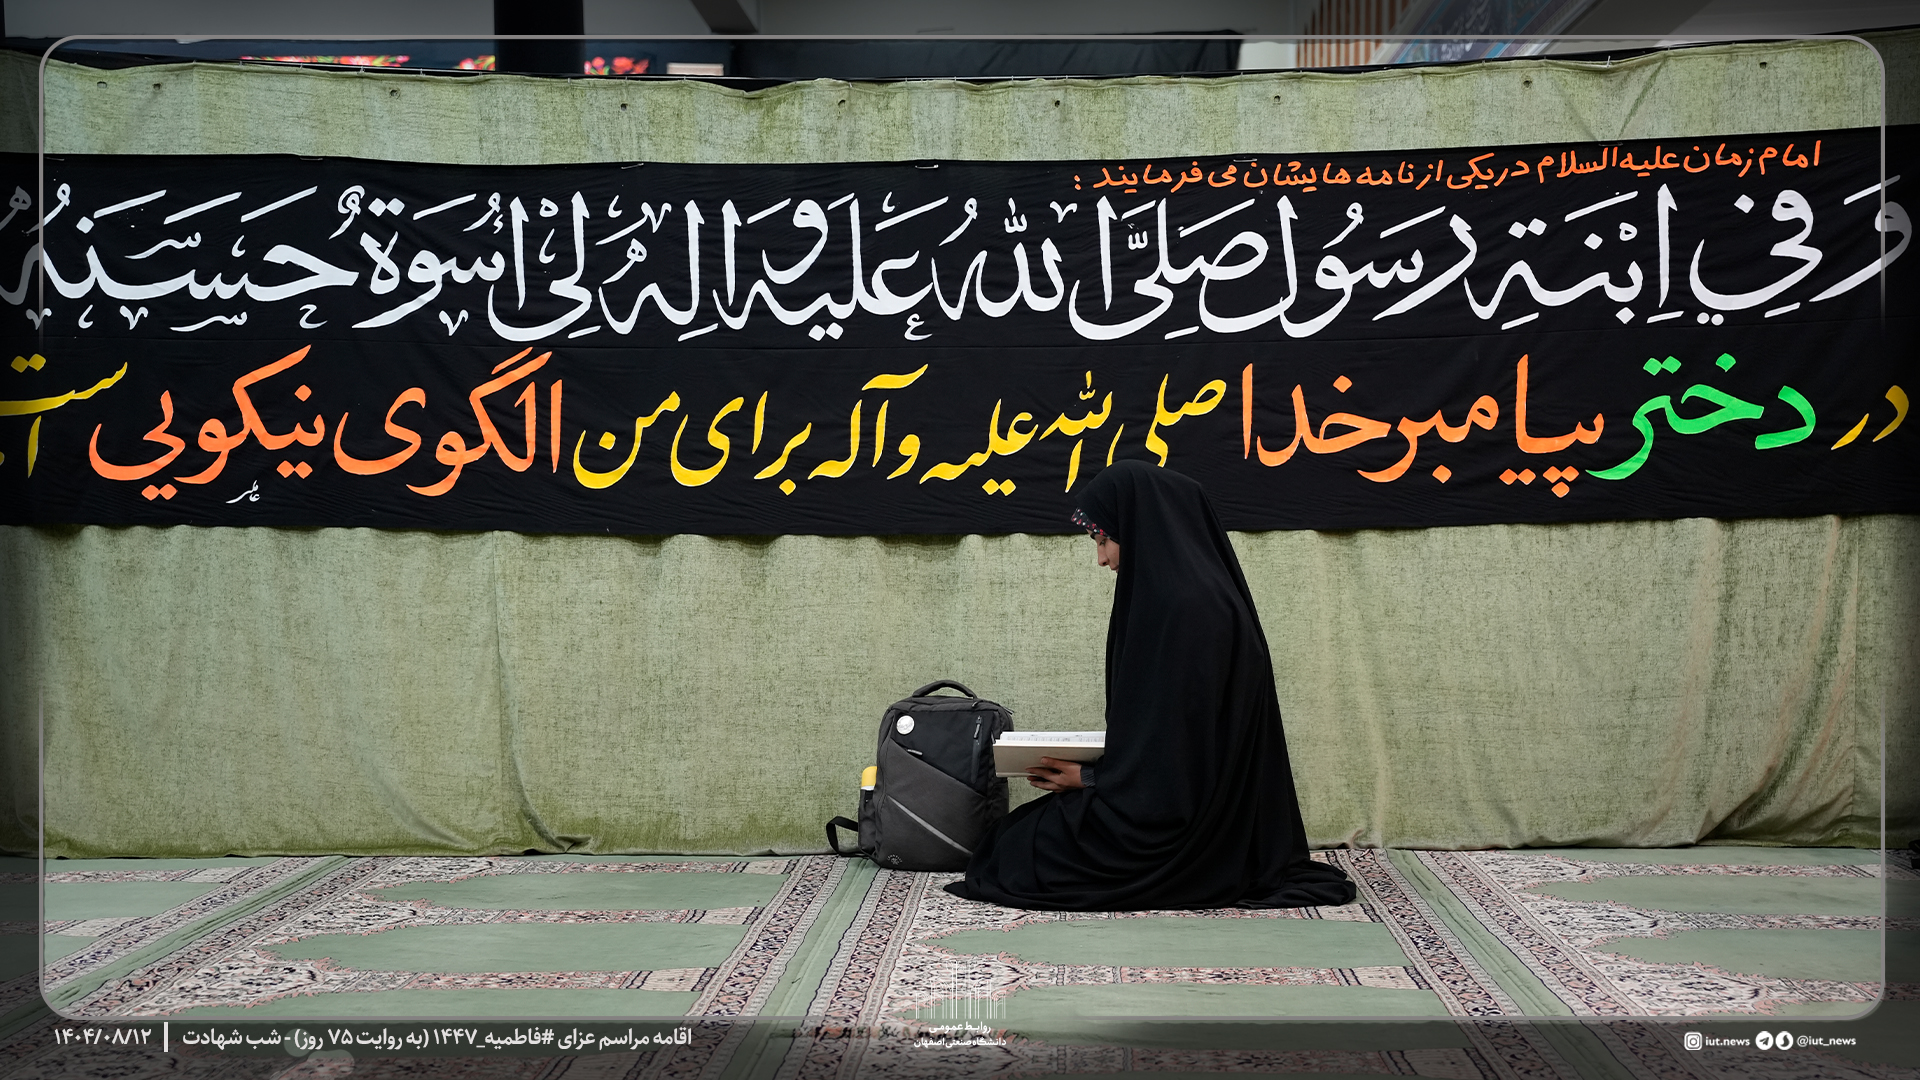 امام زمان علیه السلام در یکی از نامه هایشان می فرمایند :
وَفِي اِبْنَةِ رَسُولِ صَلَّى اللهُ عَلَيهِ وَ الِهِ لِي اُسْوَةٌ حَسَنَهُ
در دختر پیامبر خدا صلی الله علیه و آله برای من الگوی نیکویی است
روابط عمومی
دانشگاه صنعتی اصفهان
اقامه مراسم عزای #فاطمیه_۱۴۴۷ (به روایت ۷۵ روز) - شب شهادت | ۱۴۰۴/۰۸/۱۲
iut.news @iut_news